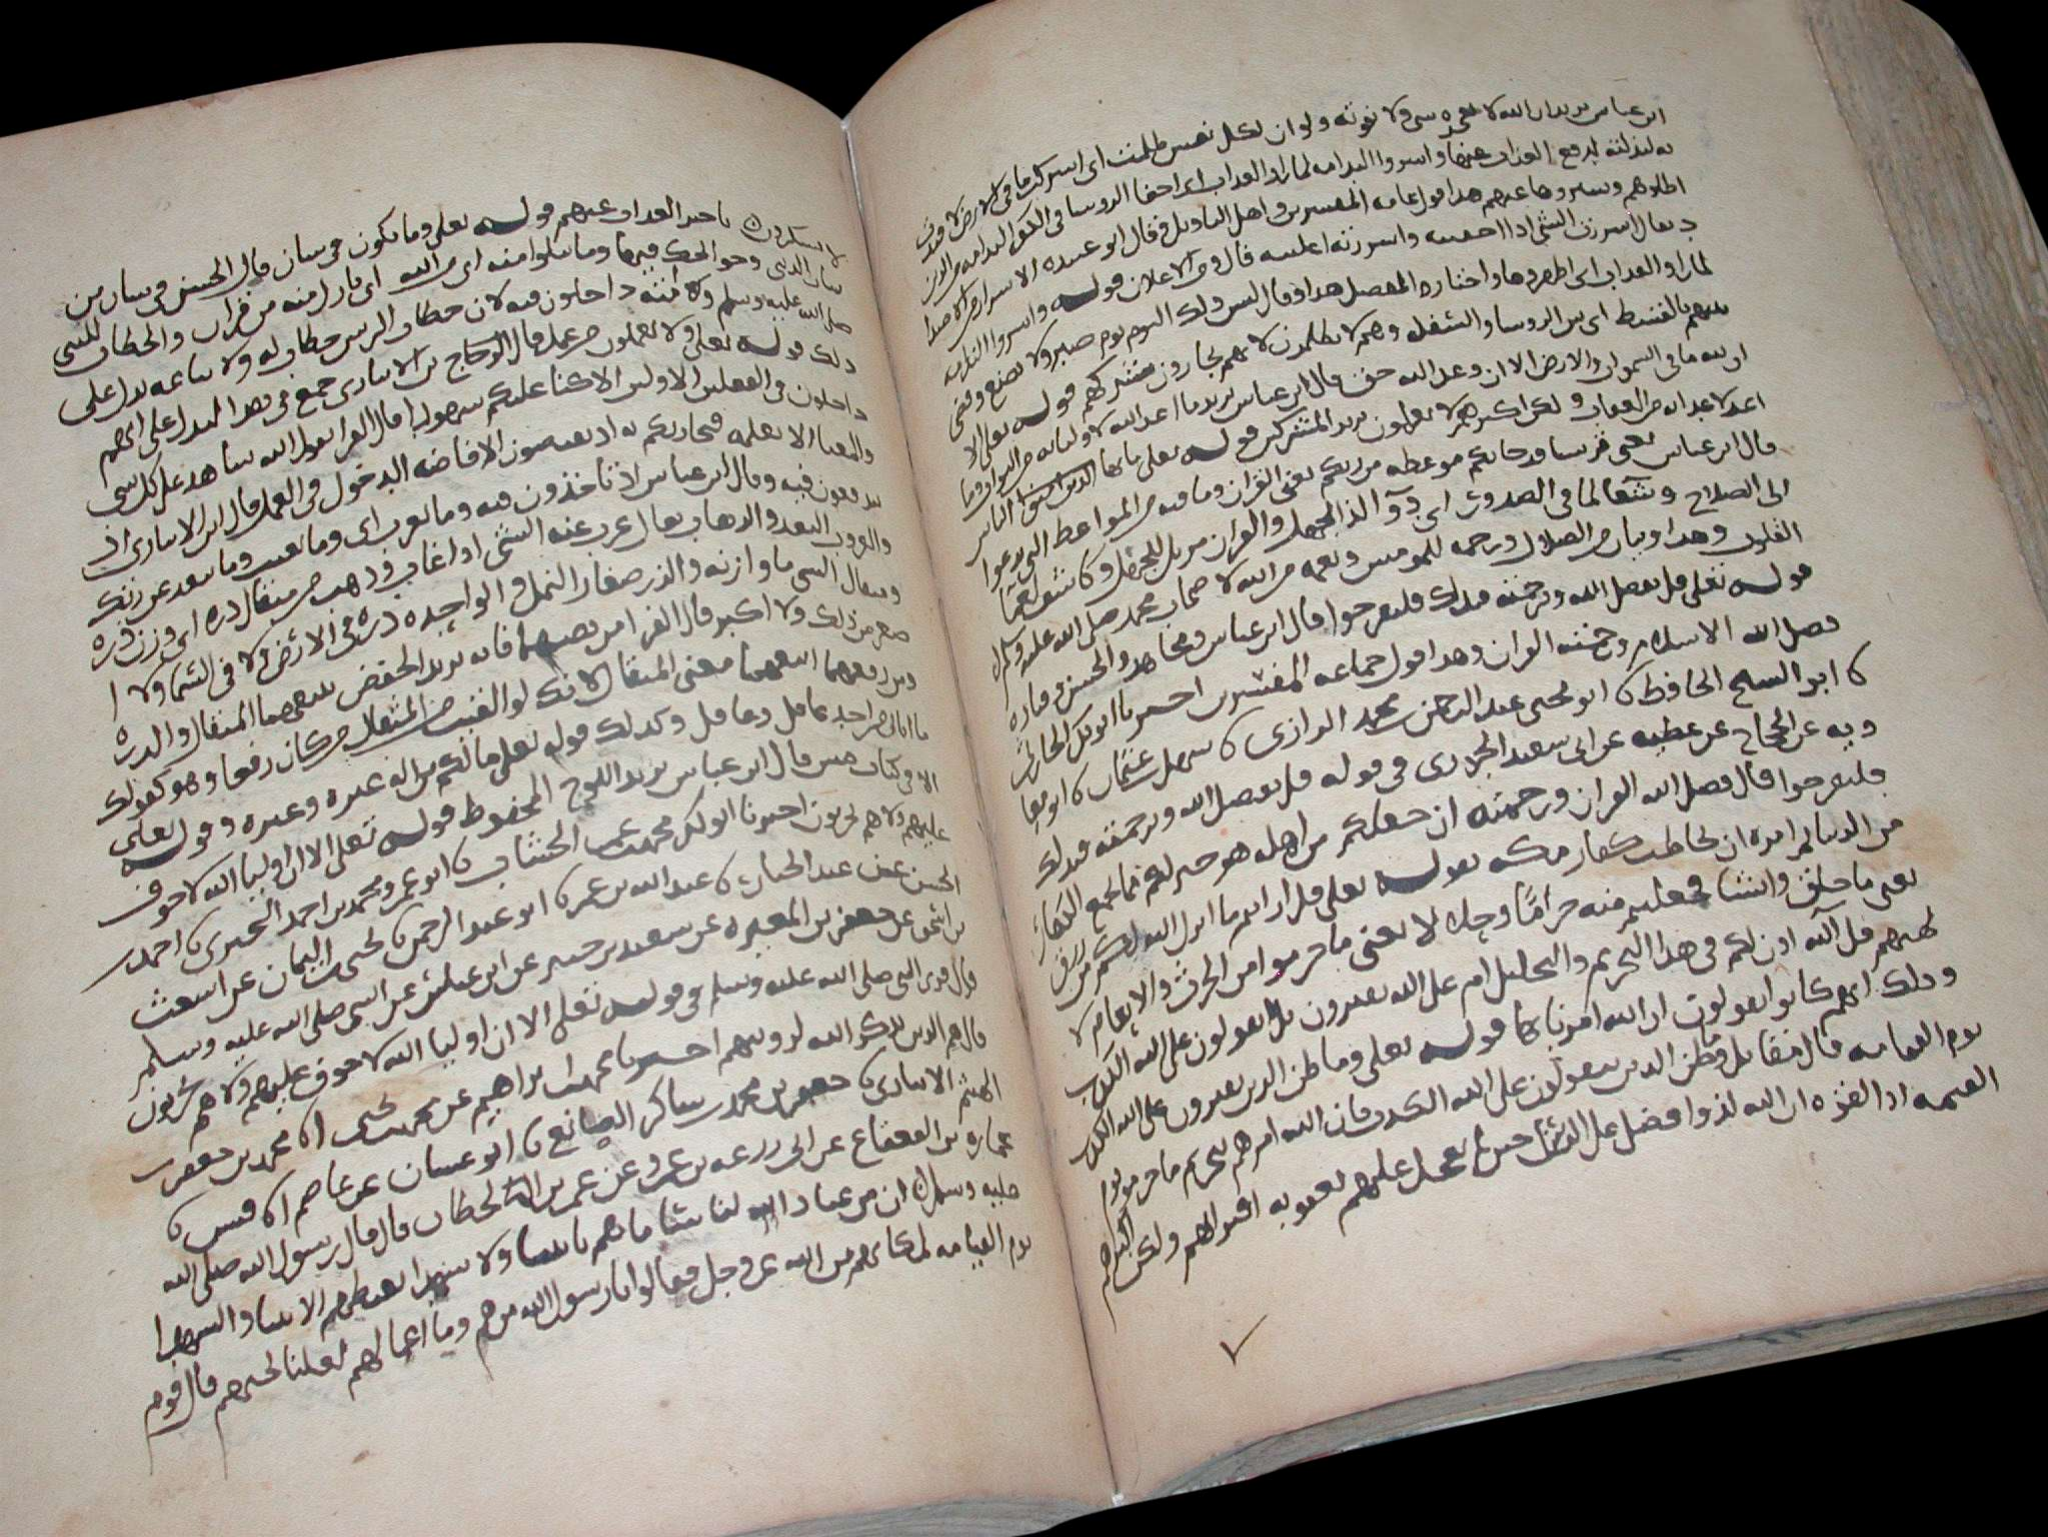 ابن عباس يريد ان الله لا يعجزه شى ولا يفوته ولو ان لكل نفس ظلمت اى اشركت ما فى الارض لافتدت
به لبذلته لدفع العذاب عنها واسروا الندامه لما راوا العذاب اى اخفا الروسا فى الكفر الندامه من الذين
اضلوهم وستروها عنهم هذا قول عامه المفسرين واهل التاويل وقال ابو عبيده الاسرار من الاضداد
يقال اسررت الشى اذا اخفيته واسررته اعلنته قال ومن الاعلان قوله واسروا الندامه
لما راوا العذاب اى اظهروها واختاره المفضل هذا وقال ليس ذلك اليوم يوم صبر ولا تصنع وقضى
بينهم بالقسط اى بين الروسا والسفله وهم لا يظلمون لانهم يجازون بشركهم قوله تعلى الا
ان لله ما فى السموات والارض الا ان وعد الله حق قال ابن عباس يريد ما اعد الله لاوليائه من الثواب وما
اعد لاعدائه من العقاب ولكن اكثرهم لا يعلمون يريد المشركين قوله تعلى يايها الناس
قال ابن عباس يعنى قريشا قد جاتكم موعظه من ربكم يعنى القران وما فيه من المواعظ التى تدعوا
الى الصلاح وشفا لما فى الصدور اى دوآ لذا الجهل والقران مزيل للجهل وكاشف لعمآ
القلوب وهدا وبيان من الضلال ورحمه للمومنين ونعمه من الله لاصحاب محمد صلى الله عليه وسلم
قوله تعلى قل بفضل الله وبرحمته فبذلك فليفرحوا قال ابن عباس ومجاهد والحسن وقتاده
فضل الله الاسلام ورحمته القران وهذا قول جماعه المفسرين اخبرنا ابو بكر الحارثى
نا ابو الشيخ الحافظ نا ابو يحيى عبد الرحمن بن محمد الرازى نا سهل بن عثمان نا ابو معا
ويه عن الحجاج عن عطيه عن ابى سعيد الخدرى فى قوله قل بفضل الله وبرحمته فبذلك
فليفرحوا قال فضل الله القران ورحمته ان جعلكم من اهله هو خير لهم مما يجمع الكفار
من الدنيا ثم امره ان يخاطب كفار مكه بقوله تعلى قل ارايتم ما انزل الله لكم من رزق
يعنى ما خلق وانشا فجعلتم منه حرامًا وحلالا يعنى ما حرموا من الحرث والانعام لا
لهتهم قل آلله اذن لكم فى هذا التحريم والتحليل ام على الله تفترون بل تقولون على الله الكذب
وذلك انهم كانوا يقولون ان الله امرنا بها قوله تعلى وما ظن الذين يفترون على الله الكذب
يوم القيامه قال مقاتل وما ظن الذين يتقولون على الله الكذب فان الله امرهم بتحريم ما حرموا يوم
القيمه اذا لقوه ان الله لذو فضل على الناس حين لا يعجل عليهم بعقوبه افترائهم ولكن اكثرهم
لا يشكرون تاخير العذاب عنهم قوله تعلى وما تكون فى شان قال الحسن فى شان من
شان الدنيا وحوائجك فيها وما تتلوا منه اى من الله اى نازل منه من قران والخطاب للنبى
صلى الله عليه وسلم وامته داخلون فيه لان خطاب الرئيس خطاب له ولاتباعه يدل على
ذلك قوله تعلى ولا تعملون من عمل قال الزجاج بن الانبارى جمع فى هذا ليدل على انهم
داخلون فى الفعلين الاولين الا كنا عليكم شهودا قال الفرا يقول الله شاهد على كل شى
والمعنا الا نعلمه فنجازيكم به اذ تفيضون الافاضه الدخول فى العمل قال ابن الانبارى اذ
تدفعون فيه وقال ابن عباس اذ تاخذون فيه وما يعزب اى وما يغيب وما يبعد عن ربك
والعزوب البعد والذهاب يقال عزب عنه الشى اذا غاب وذهب من مثقال ذره اى وزن ذره
ومثقال الشى ما وازنه والذر صغار النمل والواحده ذره فى الارض ولا فى السما ولا ا
صغر من ذلك ولا اكبر قال الفرا من نصبهما فانه يريد الخفض يتبعهما المثقال والذره
ومن رفعهما اتبعهما معنى المثقال لانك لو القيت من المثقال من كان رفعا وهو كقولك
ما اتانى من احد عاقل وعاقل وكذلك قوله تعلى ما لكم من اله غيره وغيره وقوله تعلى
الا فى كتاب مبين قال ابن عباس يريد اللوح المحفوظ قوله تعلى الا ان اوليا الله لا خوف
عليهم ولا هم يحزنون اخبرنا ابو بكر محمد بن عمر الخشاب نا ابو عمرو محمد بن احمد الحيرى نا احمد بن
الحسن بن عبد الجبار نا عبد الله بن عمر نا ابو عبد الرحمن نا يحيى بن اليمان عن اشعث
بن اسحق عن جعفر بن المغيره عن سعيد بن جبير عن ابن عباس عن النبى صلى الله عليه وسلم
قال قرى النبى صلى الله عليه وسلم فى قوله تعلى الا ان اوليا الله لا خوف عليهم ولا هم يحزنون
قال هم الذين يذكر الله لرويتهم اخبرنا محمد بن ابراهيم عن محمد بن يحيى انا محمد بن جعفر بن
الهيثم الانبارى نا جعفر بن محمد بن شاكر الصايغ نا ابو غسان عن عاصم انا قيس نا
عماره بن القعقاع عن ابى زرعه بن عمرو عن عمر بن الخطاب قال قال رسول الله صلى الله
عليه وسلم ان من عباد الله لناسا ما هم بانبيا ولا شهدا يغبطهم الانبيا والشهدا
يوم القيامه لمكانهم من الله عز وجل فقالوا يا رسول الله من هم وما اعمالهم لعلنا نحبهم قال قوم